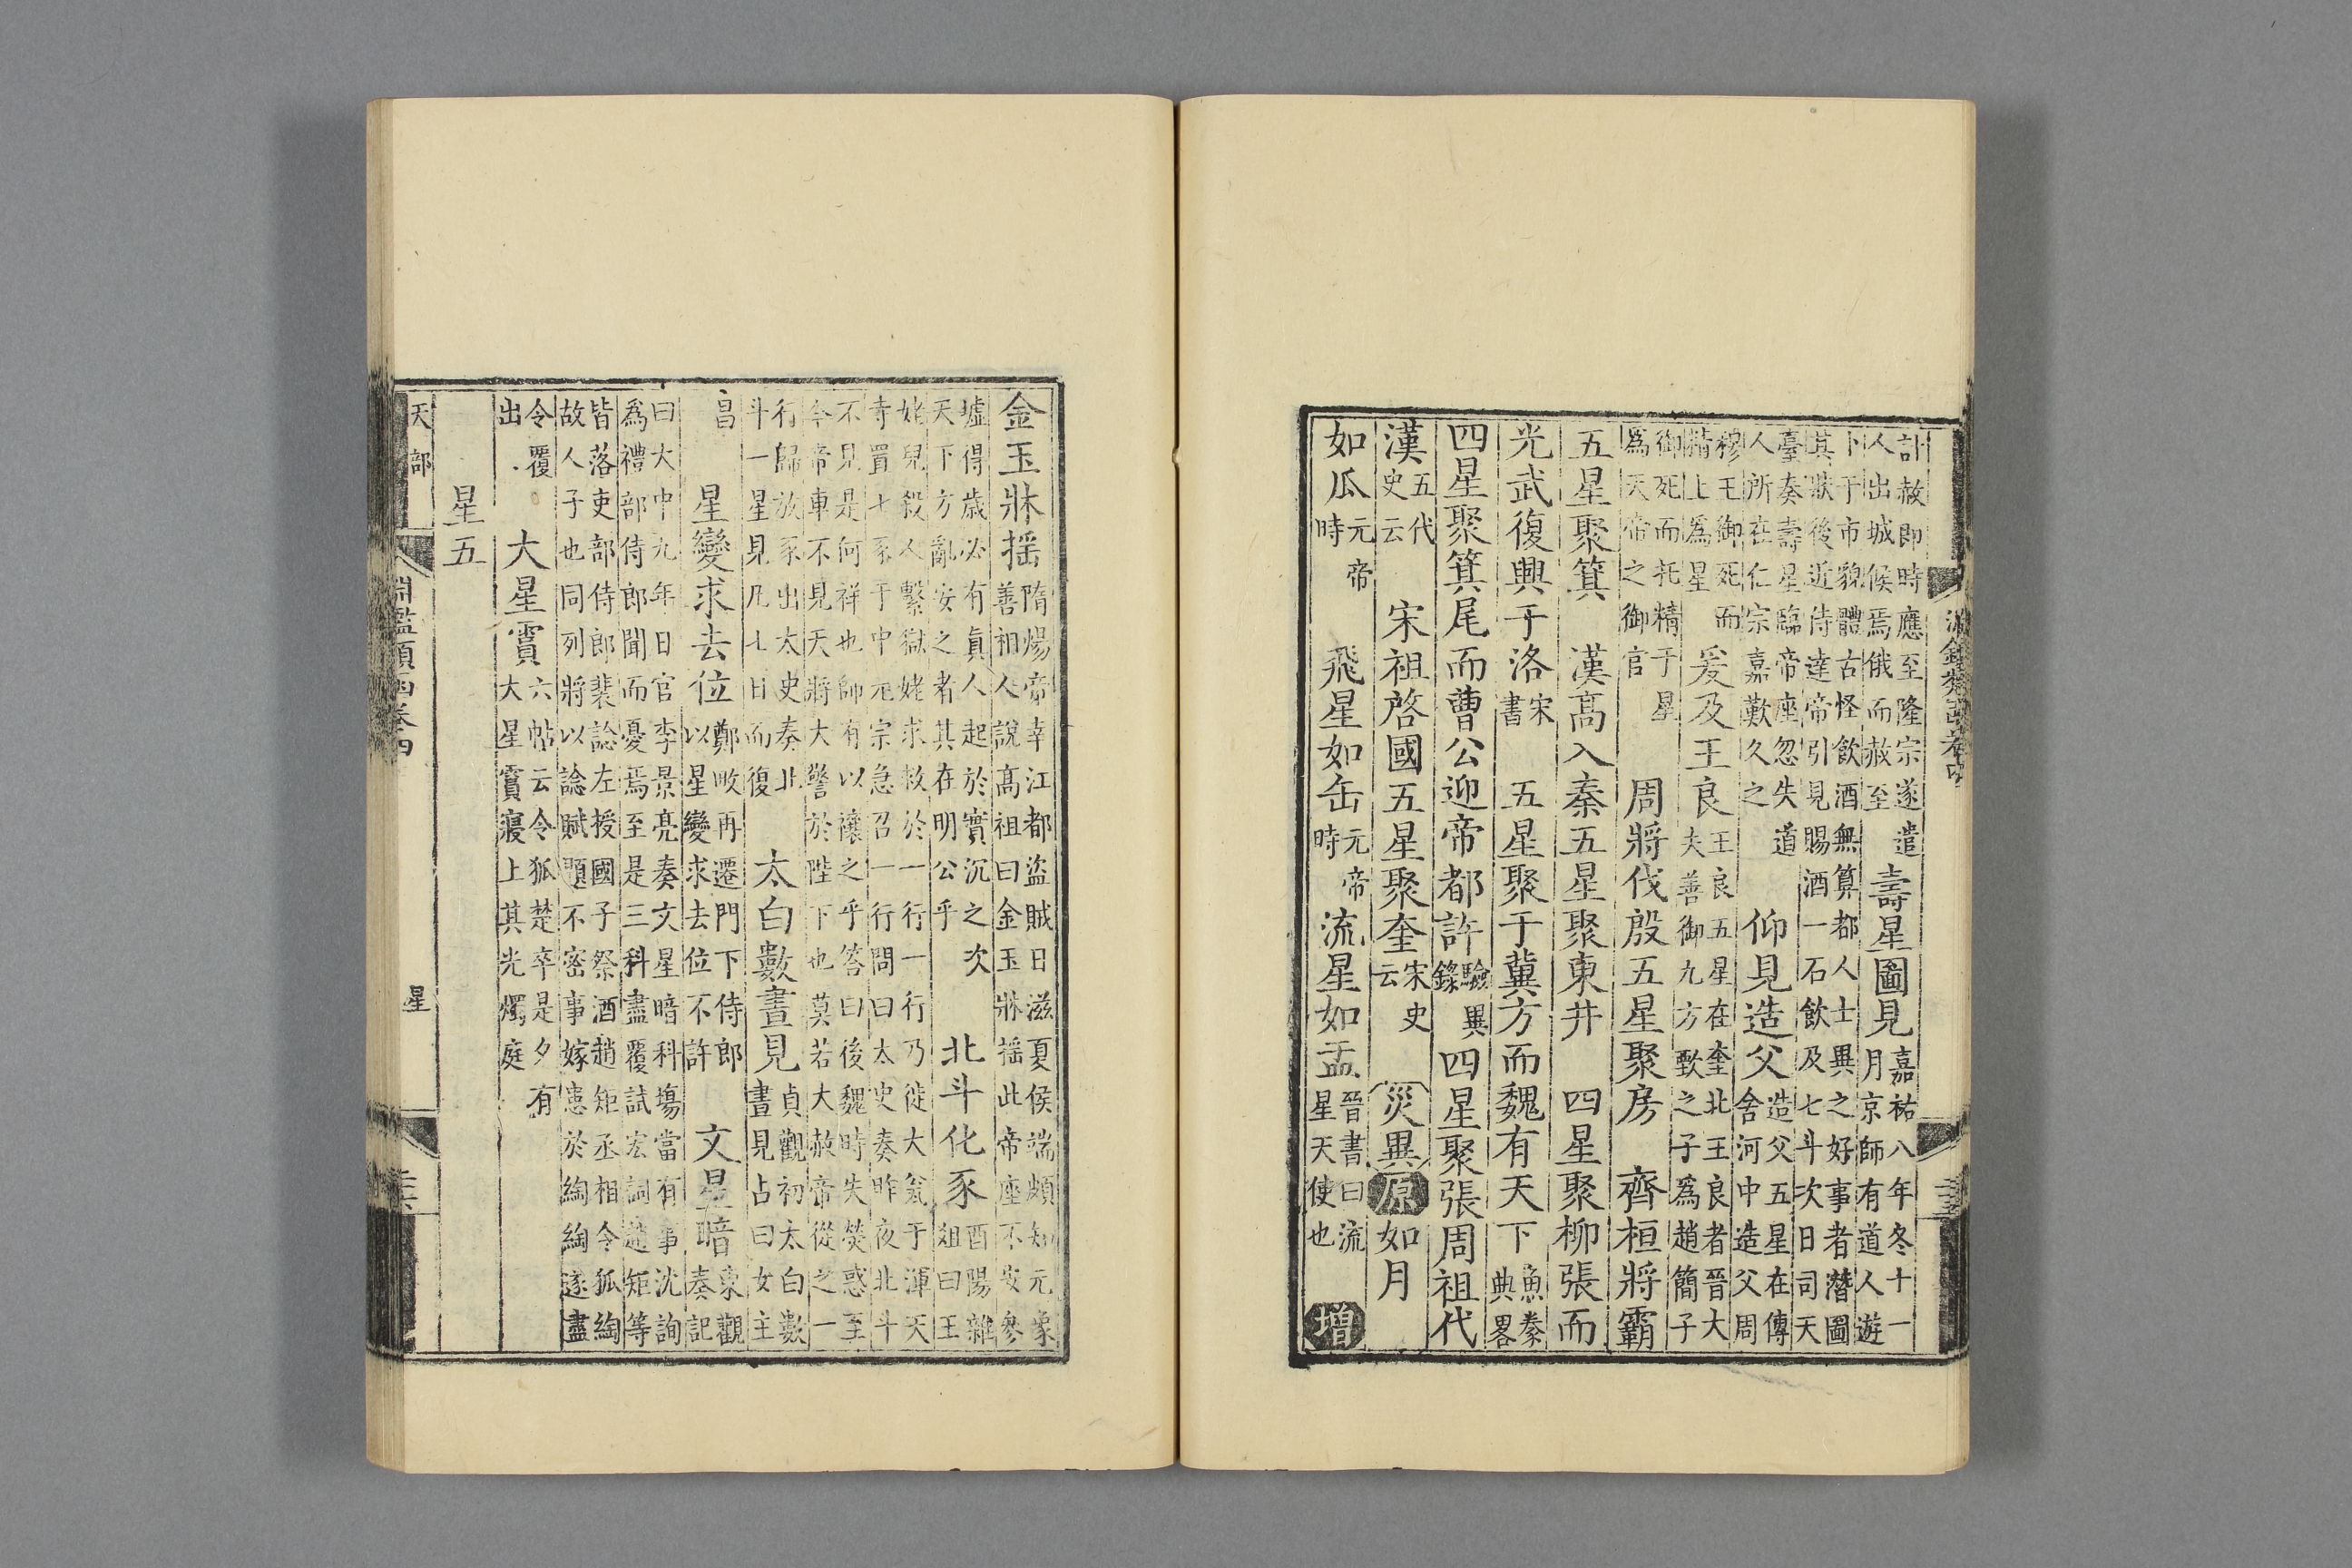 計赦即時應至隆宗遂遣人出城候焉俄而赦至 壽星圖見 嘉祐八年冬十一月京師有道人遊
卜于市貌體古怪飲酒無算都人士異之好事者潛圖其狀後近侍達帝引見賜酒一石飲及七斗次日司天
臺奏壽星臨帝座忽失道人所在仁宗嘉歎久之 仰見造父 造父五星在傳舍河中造父周
穆王御死而精上爲星 爰及王良 王良五星在奎北王良者晉大夫善御九方歅之子爲趙簡子
御死而托精于星爲天帝之御官 周將伐殷五星聚房 齊桓將霸
五星聚箕 漢高入秦五星聚東井 四星聚柳張而
光武復興于洛 宋書 五星聚于冀方而魏有天下 魚豢典畧
四星聚箕尾而曹公迎帝都許 驗異錄 四星聚張周祖代
漢 五代史云 宋祖啓國五星聚奎 宋史云 災異 原 如月
如瓜 元帝時 飛星如缶 元帝時 流星如盂 晉書曰流星天使也 增
金玉牀搖 隋煬帝幸江都盜賊日滋夏侯端頗知元象善相人說高祖曰金玉牀搖此帝座不安參
墟得歲必有真人起於實沉之次天下方亂安之者其在明公乎 北斗化豕 酉陽雜俎曰王
姥兒殺人繫獄姥求救於一行一行乃徙大瓮于渾天寺置七豕于中元宗急召一行問曰太史奏昨夜北斗
不見是何祥也師有以禳之乎答曰後魏時失熒惑至今帝車不見天將大警於陛下也莫若大赦帝從之一
行歸放豕出太史奏北斗一星見凡七日而復 太白數晝見 貞觀初太白數晝見占曰女主
昌 星變求去位 鄭畋再遷門下侍郎以星變求去位不許 文星暗 東觀奏記
曰大中九年日官李景亮奏文星暗科場當有事沈詢爲禮部侍郎聞而憂焉至是三科盡覆試宏詞趙矩等
皆落吏部侍郎裴諗左授國子祭酒趙矩丞相令狐綯故人子也同列將以諗賦題不密事嫁患於綯綯遂盡
令覆出 大星霣 六帖云令狐楚卒是夕有大星霣寢上其光燭庭
星五
天部 淵鑑類函卷四 星